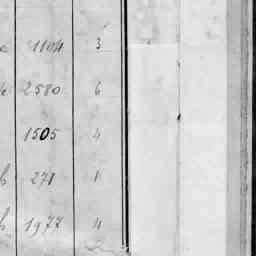 1104 3
2580 6
1505 4
271 1
1977 4